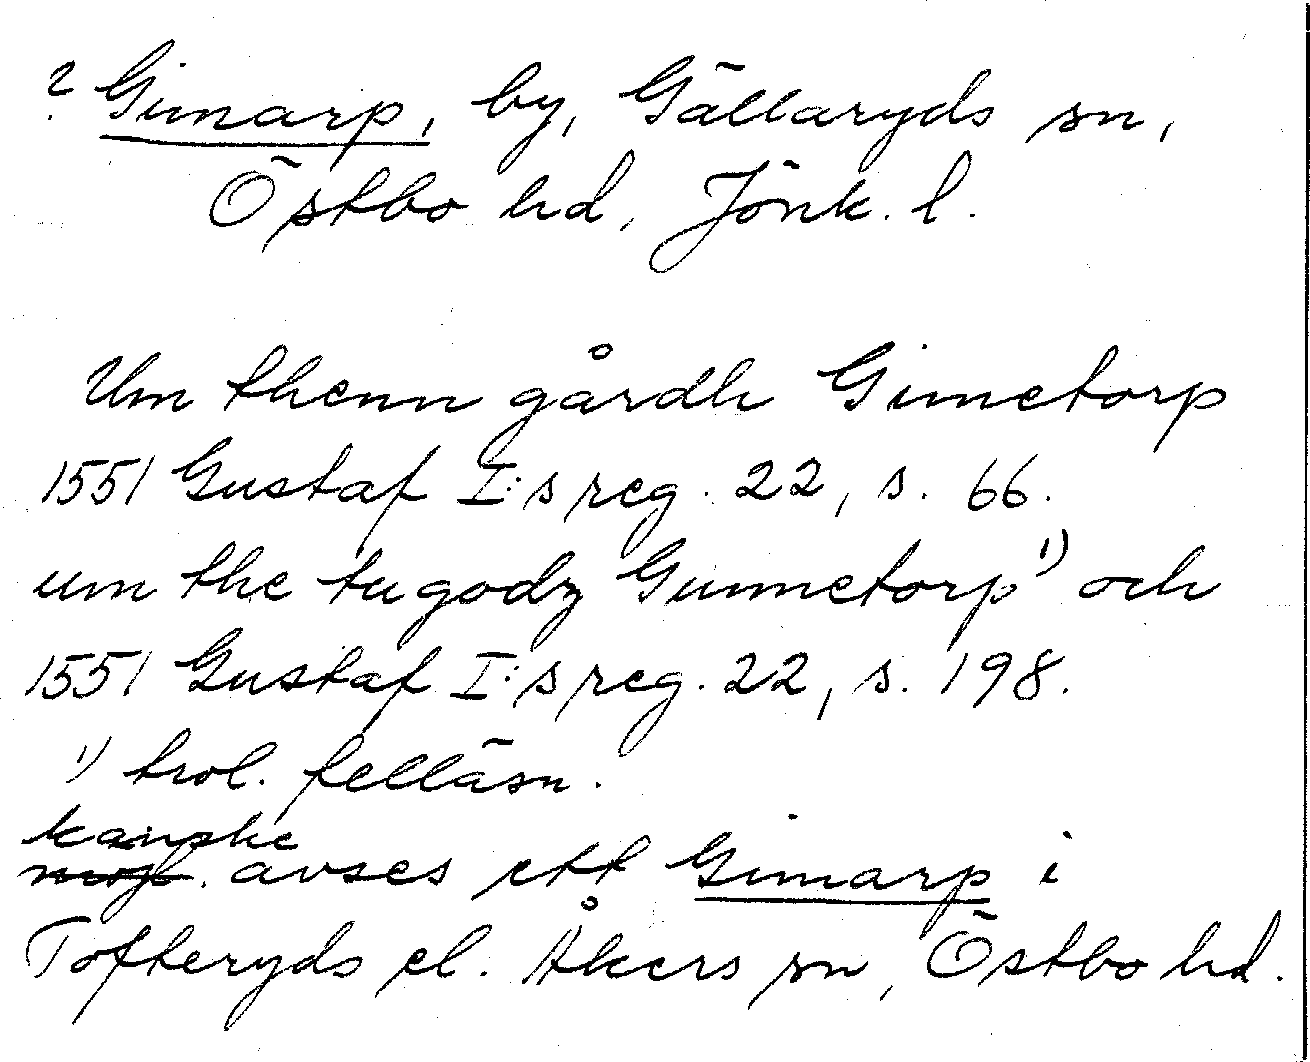 ? Gimarp, by, Gällaryds sn,
Östbo hd, Jönk. l.
Um thenn gårdh Gimetorp
1551 Gustaf I:s reg. 22, s. 66.
um the tu godz Gunnetorp¹) och
1551 Gustaf I:s reg. 22, s. 198.
¹) trol. felläsn.
kanske
avses ett Gimarp i
Tofteryds el. Åkers sn, Östbo hd.